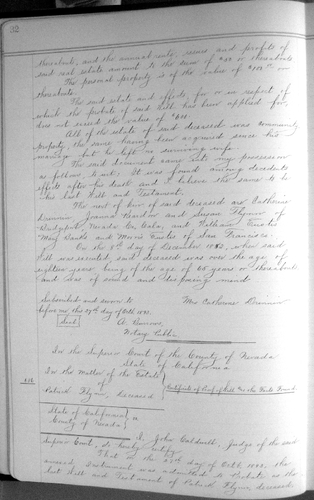 32
thereabouts, and the annual rents, issues and profits of
said real estate amount to the sum of or thereabouts
The personal property is of the value of or
thereabouts.
The said estate and effects for or in respect of
which the probate of said Will has been applied for,
does not exceed the value of
All of the estate of said deceased was community
property, the same having been acquired since his
marriage but he left no surviving wife.
The said document came into my possession
as follows to wit; It was found among decedents
effects after his death and I believe the same to be
his last Will and Testament.
The next of kin of said deceased are Catherine
Drennin, Joanna Bardow and Susan Flynn of
Bridgeport Nevada Co. Cala, and
Mary and of San Francisco.
On the day of December 1883, when said
Will was executed, said deceased was over the age of
eighteen years being of the age of 65 years or thereabouts
and was of sound and disposing mind
Subscribed and sworn to Mrs Catherine Drennin
before me this 17th day of
Seal
Notary Public
In the Superior Court of the County of Nevada
State of California
In the Matter of the Estate
of
Patrick Flynn, Deceased
Certificate of Proof of Will and the Facts Found.
State of California
County of Nevada
I, John Caldwell, Judge of the said
Superior Court, do hereby certify
That on the day of the
annexed Instrument was admitted to Probate as the
last Will and Testament of Patrick Flynn deceased